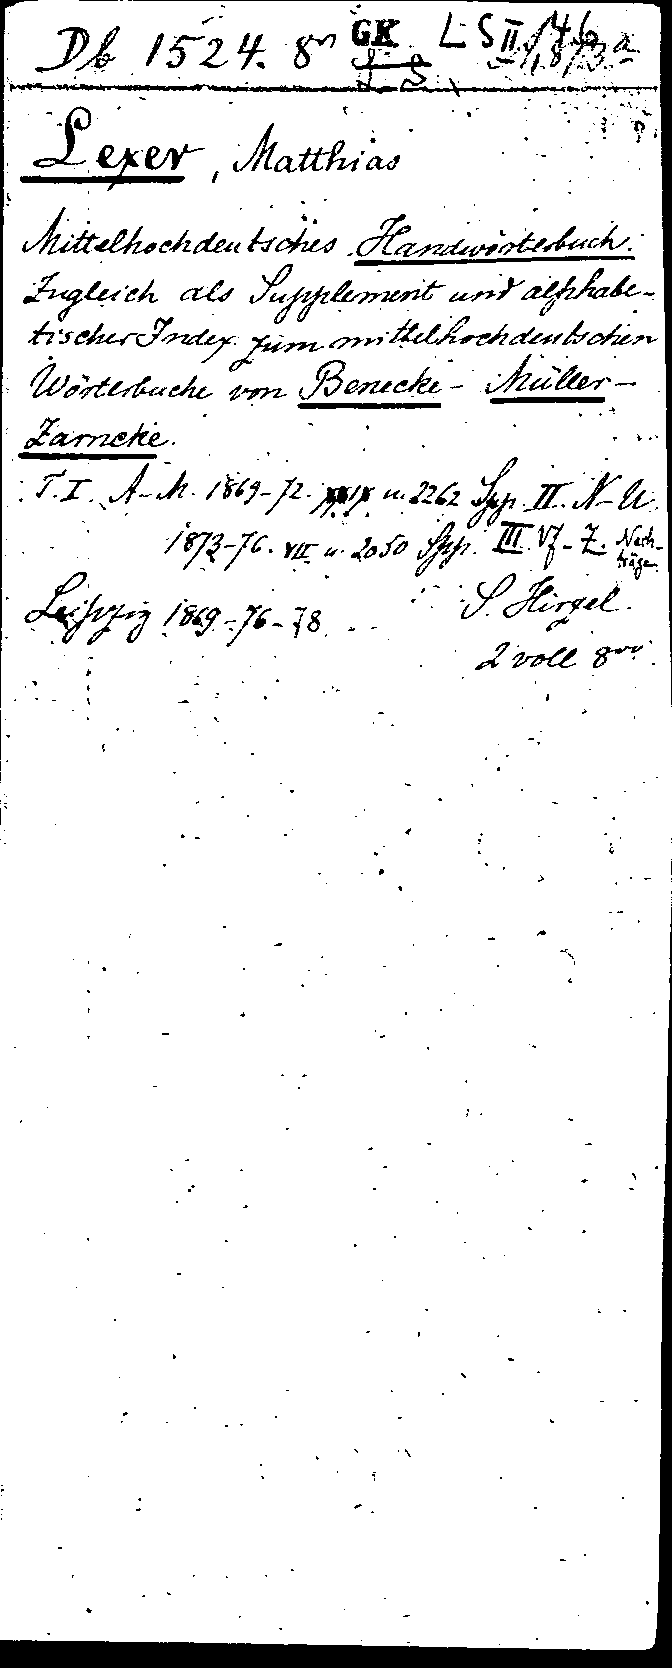 Db 1524. 8ᵒ GK L S II
Lexer, Matthias
Mittelhochdeutsches Handwörterbuch.
Zugleich als Supplement und alphabe-
tischer Index zum mittelhochdeutschen
Wörterbuche von Benecke - Müller -
Zarncke.
T. I. A-M. 1869-72. XXIX u. 2262 Spp. II. N-U.
1873-76. VII u. 2050 Spp. III. Vf-Z. Nach-
träge
Leipzig 1869-76-78 S. Hirzel.
2 voll 8ᵛᵒ